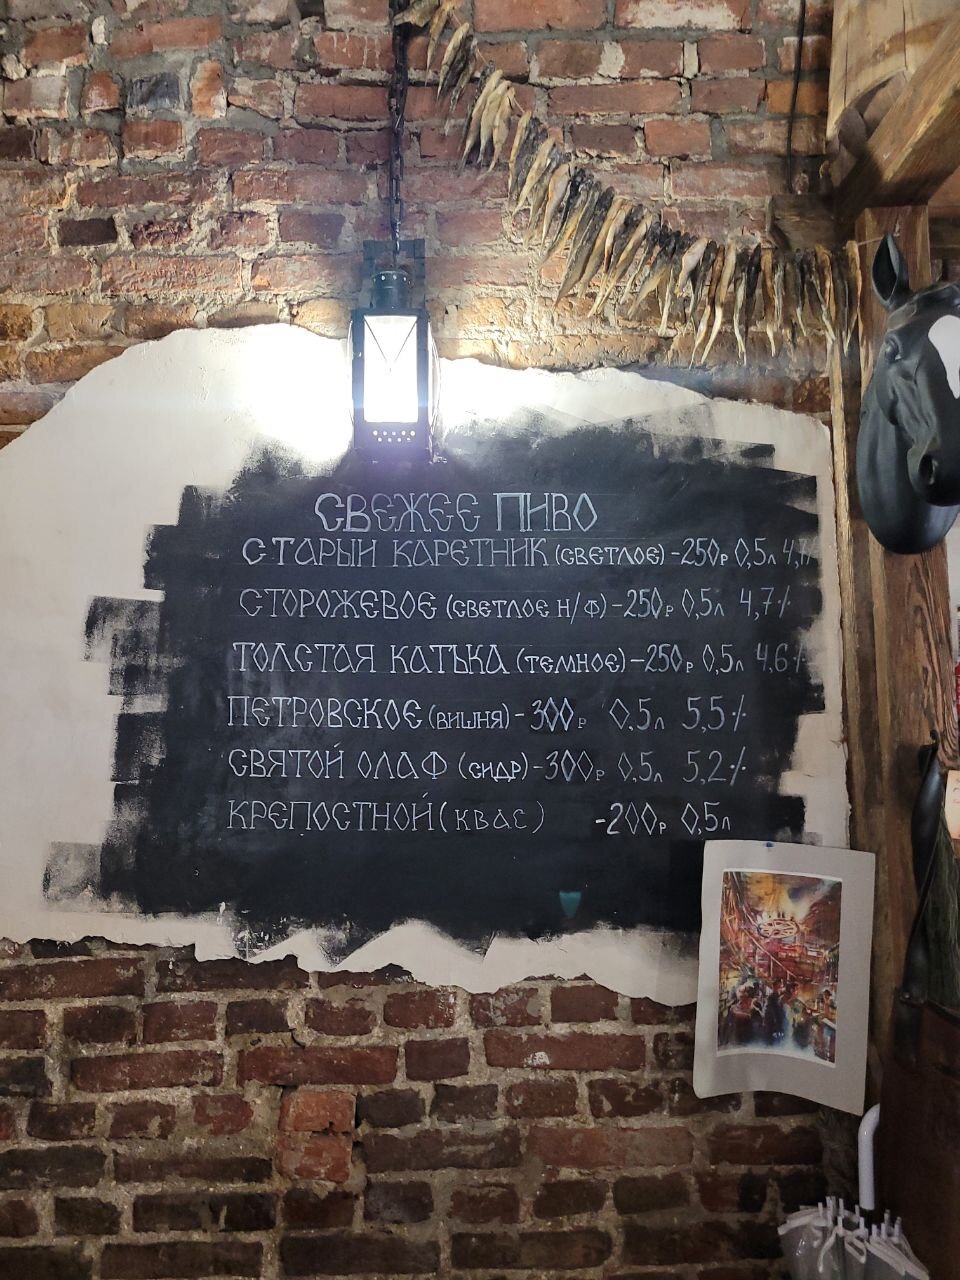 СВЕЖЕЕ ПИВО
СТАРЫЙ КАРЕТНИК (СВЕТЛОЕ) - 250р 0,5л
СТОРОЖЕВОЕ (СВЕТЛОЕ Н/Ф) - 250р 0,5л 4,7%
ТОЛСТАЯ КАТЬКА (ТЕМНОЕ) - 250р 0,5л 4,6%
ПЕТРОВСКОЕ (ВИШНЯ) - 300р 0,5л 5,5%
СВЯТОЙ ОЛАФ (СИДР) - 300р 0,5л 5,2%
КРЕПОСТНОЙ (КВАС) - 200р 0,5л